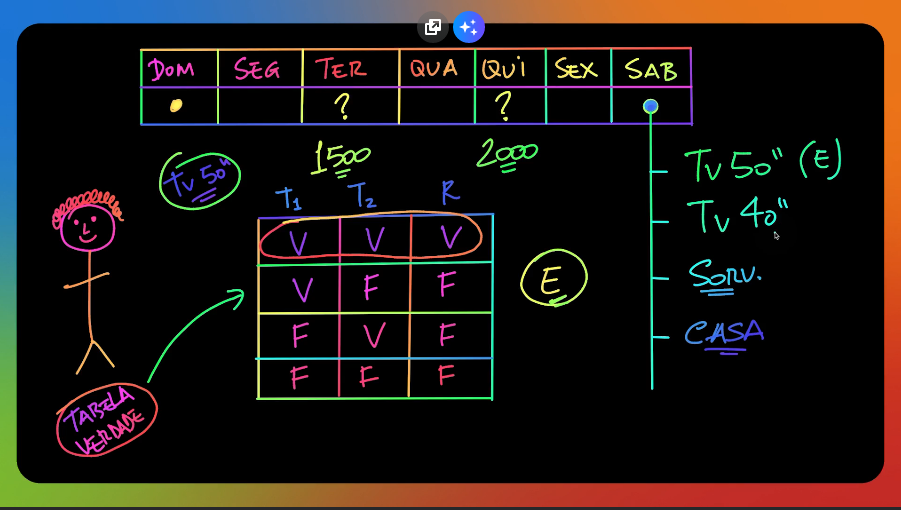 DOM SEG TER QUA QUI SEX SAB
? ?
1500 2000
TV 50"
T1 T2 R
V V V
V F F
F V F
F F F
E
TABELA
VERDADE
TV 50" (E)
TV 40"
SORV.
CASA